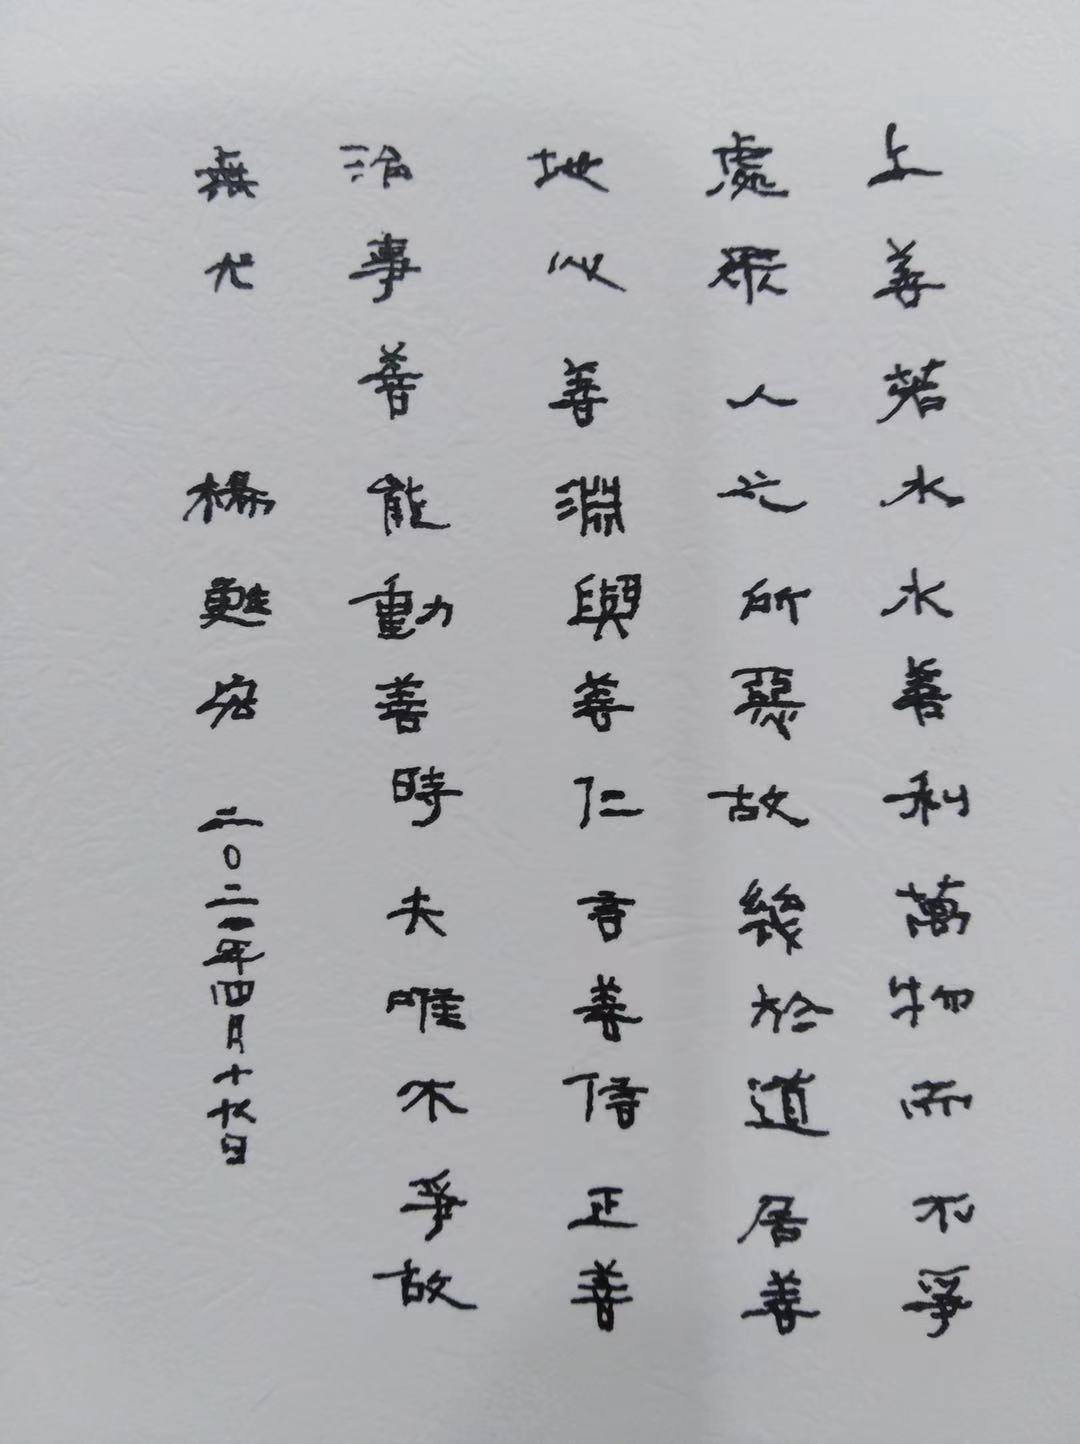 上善若水水善利萬物而不爭
處眾人之所惡故幾於道居善
地心善淵與善仁言善信正善
治事善能動善時夫唯不爭故
無尤 楊甦宏 二〇二一年四月十日